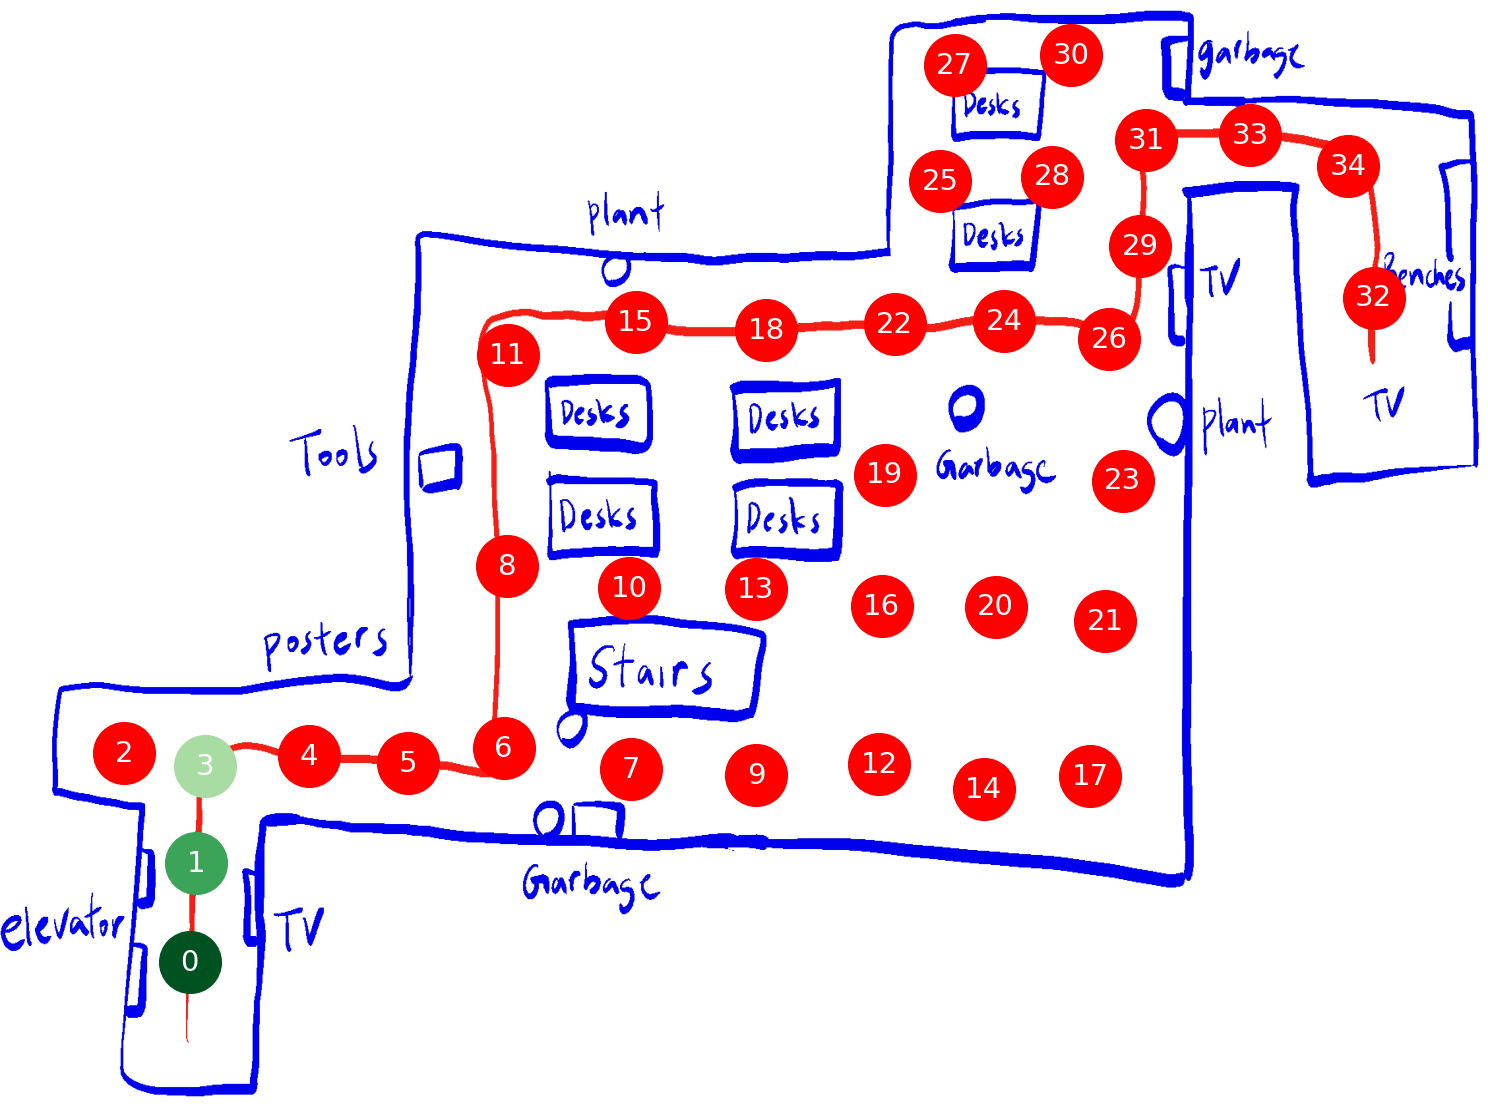 27
30
garbage
Desks
31
33
34
25
28
plant
Desks
29
TV
Benches
32
15
18
22
24
26
11
TV
Desks
Desks
plant
Tools
19
Garbage
23
Desks
Desks
8
10
13
16
20
21
posters
Stairs
2
3
4
5
6
7
9
12
14
17
1
Garbage
elevator
TV
0